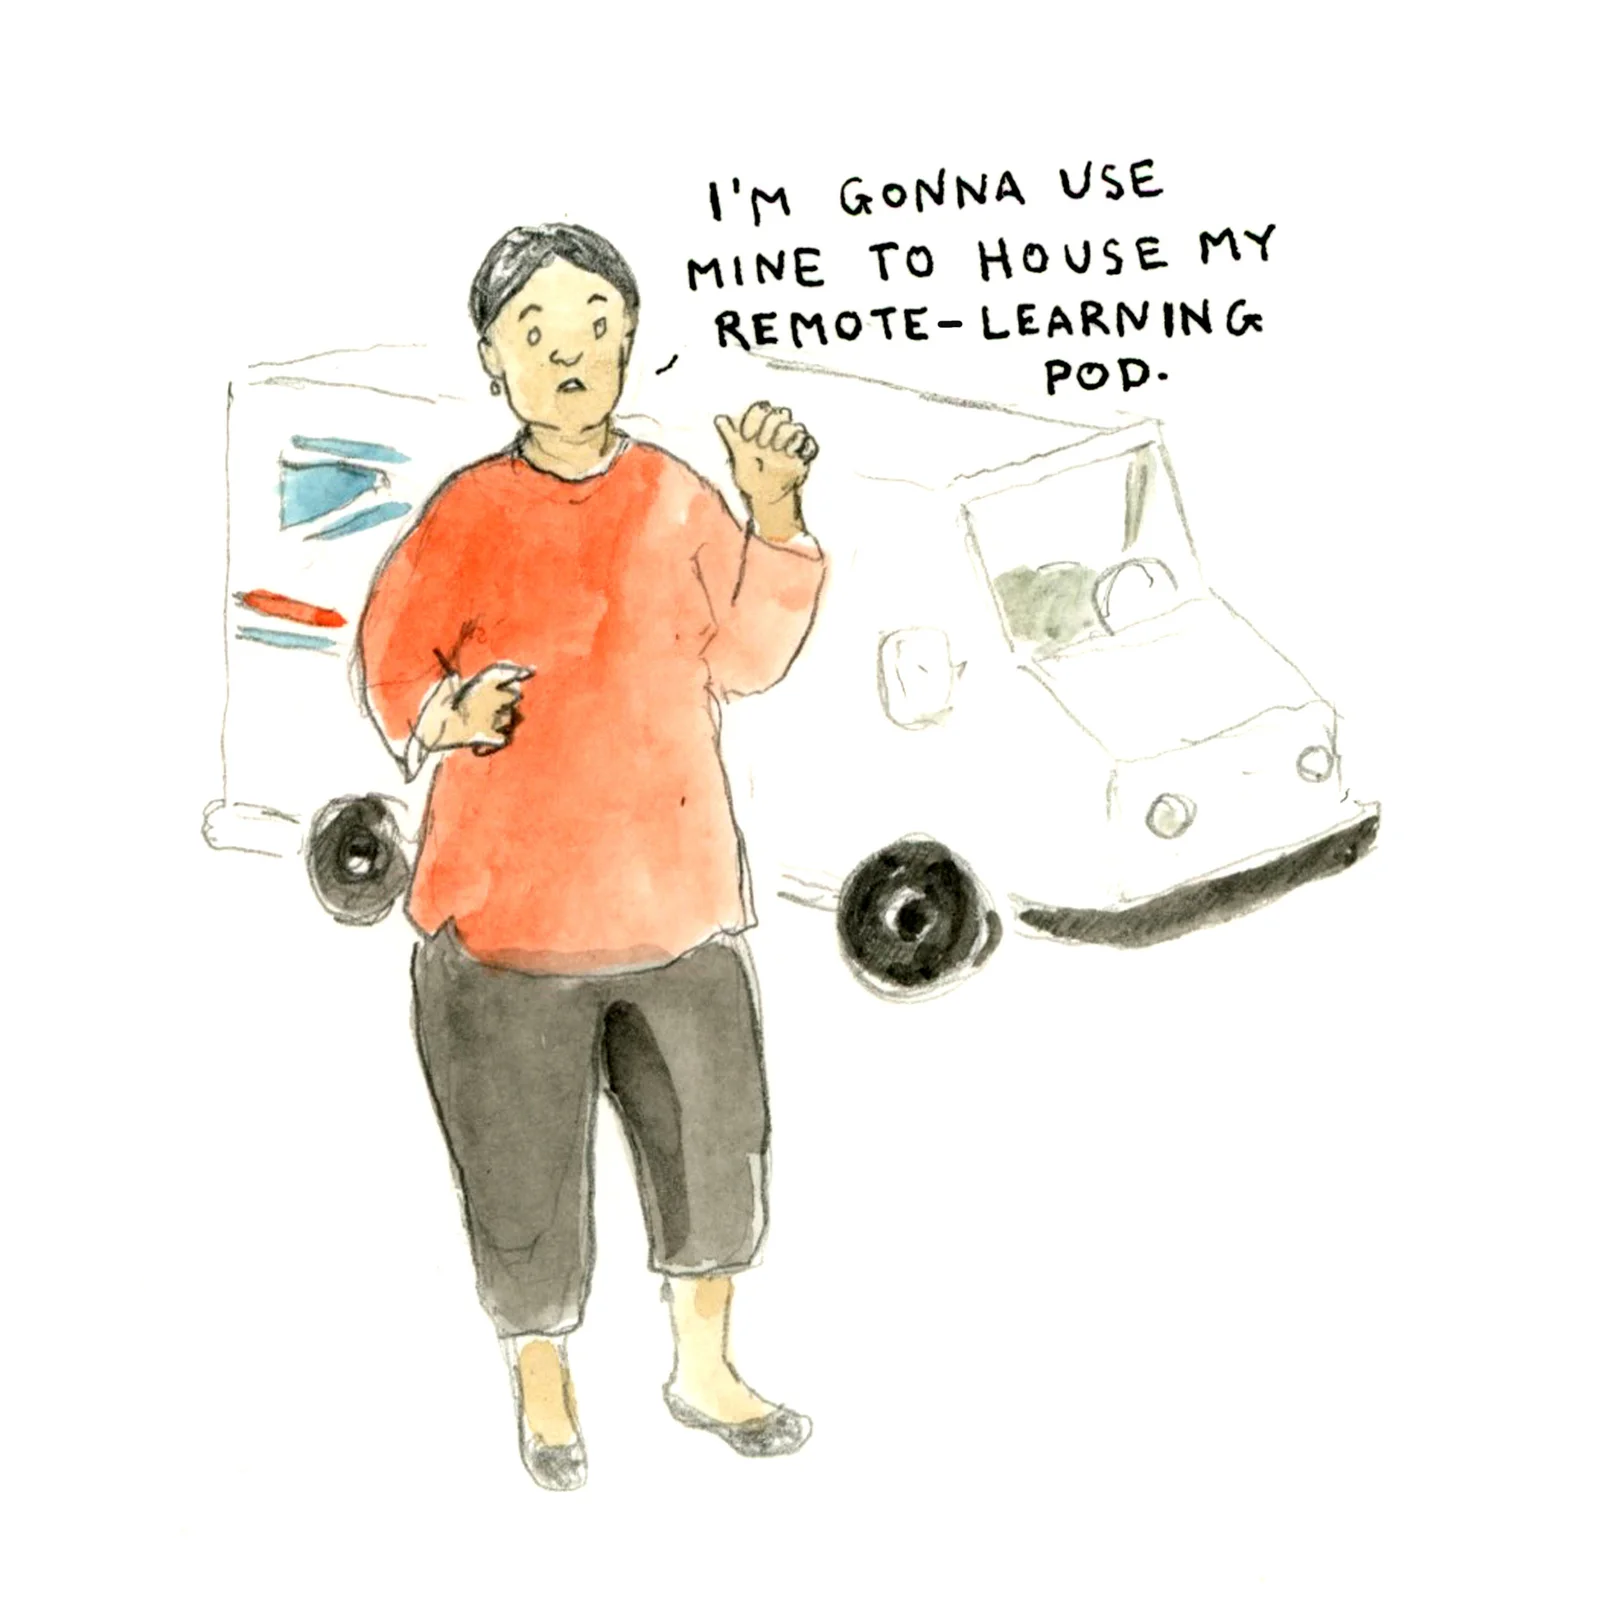 I'M GONNA USE
MINE TO HOUSE MY
REMOTE-LEARNING
POD.